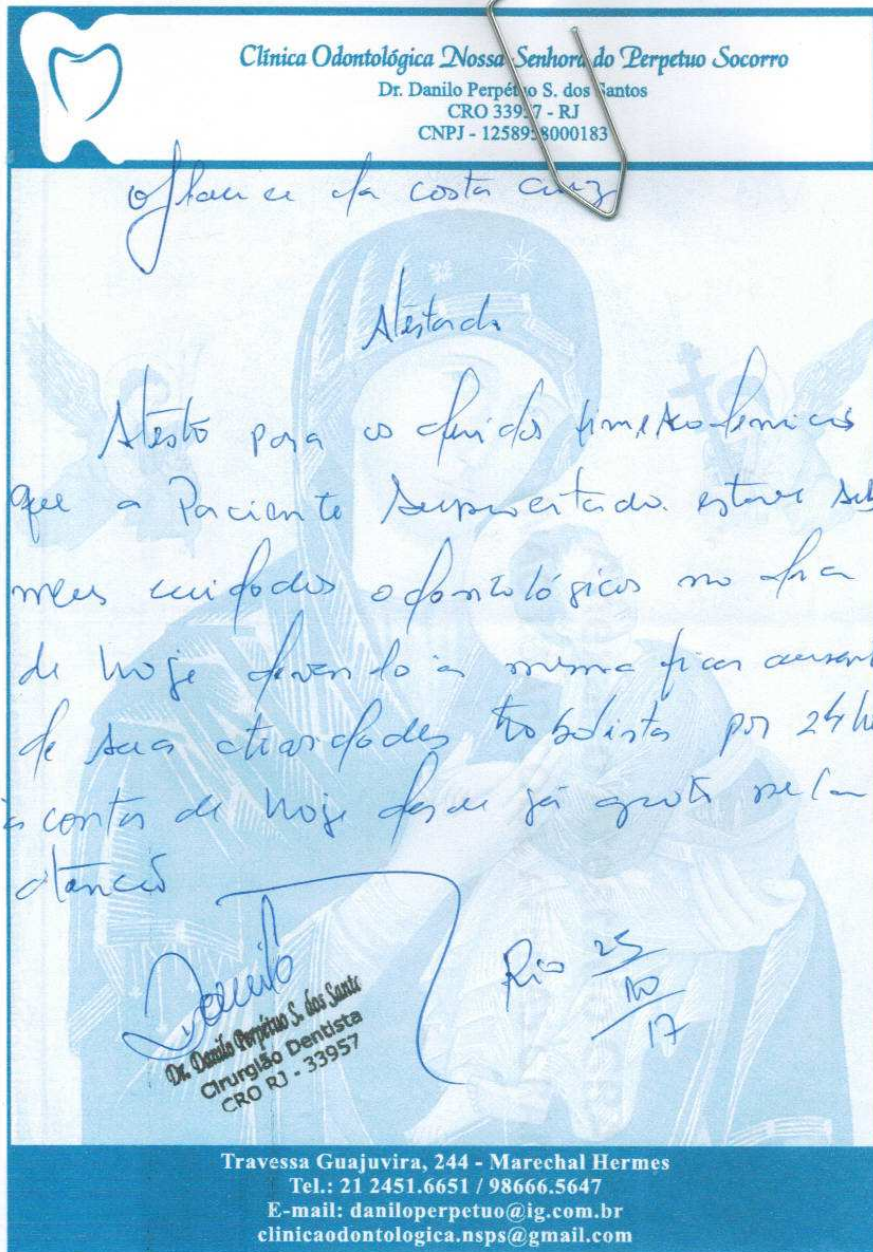 Clínica Odontológica Nossa Senhora do Perpetuo Socorro
Dr. Danilo Perpétuo S. dos Santos
CRO 33957 - RJ
CNPJ - 1258958000183
da costa Cruz
Atestado
Atesto para os devidos fins
que a Paciente supracitada esteve sob
meus cuidados odontológicos no dia
de hoje devendo a mesma ficar ausente
de suas atividades trabalhista por 24h
à contar de hoje desde já grato pela
atenção
Danilo
Dr. Danilo Perpétuo S. dos Santos
Cirurgião Dentista
CRO RJ - 33957
Rio 25
10
17
Travessa Guajuvira, 244 - Marechal Hermes
Tel.: 21 2451.6651 / 98666.5647
E-mail: daniloperpetuo@ig.com.br
clinicaodontologica.nsps@gmail.com